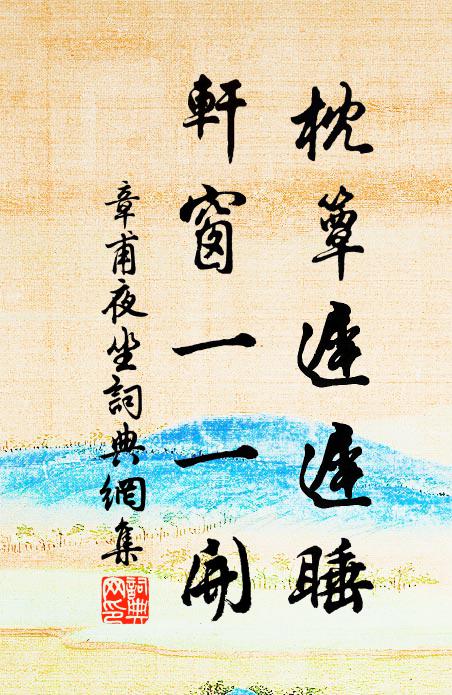 枕簟遲遲睡
軒窗一一開
章甫夜坐詞典網集
詞典网印